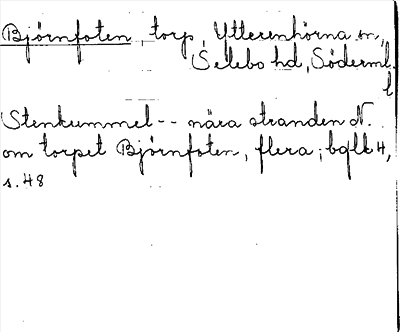 Bjórnfoten, torp, Ytterenhörna sn,
Selebo hd, Söderml.
l
Stenkummel -- nära stranden N.
om torpet Bjórnfoten, flera; bqlk 4,
s. 48